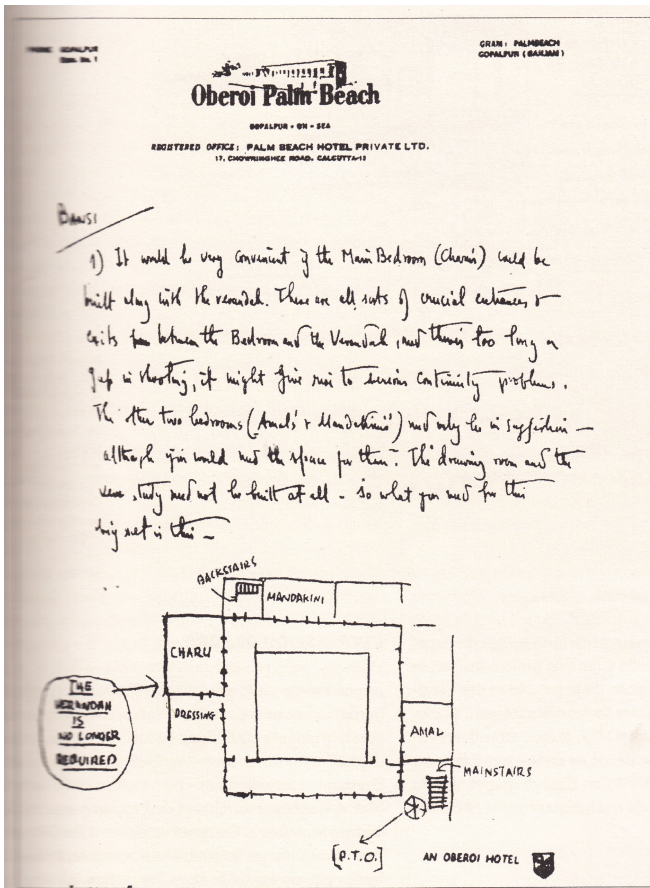 PHONE: GOPALPUR
GRAM: PALMBEACH
GOPALPUR (GANJAM)
Oberoi Palm Beach
GOPALPUR - ON - SEA
REGISTERED OFFICE: PALM BEACH HOTEL PRIVATE LTD.
17, CHOWRINGHEE ROAD, CALCUTTA-13
BANSI
1) It would be very convenient if the Main Bedroom (Charu's) could be
built along with the verandah. There are all sorts of crucial entrances &
exits between the Bedroom and the Verandah, and there's too long a
gap in shooting, it might give rise to serious continuity problems.
The other two bedrooms (Amal's & Mandakini's) need only be in suggestion —
although you would need the space for them. The drawing room and the
study need not be built at all - so what you need for this
big set is this —
BACKSTAIRS
MANDAKINI
CHARU
THE
VERANDAH
IS
NO LONGER
REQUIRED
DRESSING
AMAL
MAINSTAIRS
[P.T.O.]
AN OBEROI HOTEL